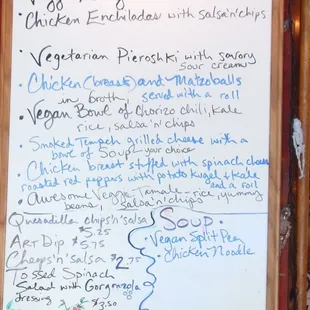 Chicken Enchiladas with salsa'n'chips
• Vegetarian Pieroshki with savory
sour cream
• Chicken (breast) and Matzoballs
in broth, served with a roll
• Vegan Bowl of Chorizo chili, kale
rice, salsa'n chips
• Smoked Tempeh grilled cheese with a
bowl of Soup - your choice
• Chicken breast stuffed with spinach cheese
roasted red peppers with potato kugel & kale
and a roll
• Awesome Veggie Tamale - rice, yummy
beans, salsa'n'chips
Quesadilla chips'n'salsa
$5.25
Art Dip $5.75
Cheeps'n'salsa $2.75
Tossed Spinach
Salad with Gorgonzola
dressing $3.50
Soup
• Vegan Split Pea
• Chicken Noodle